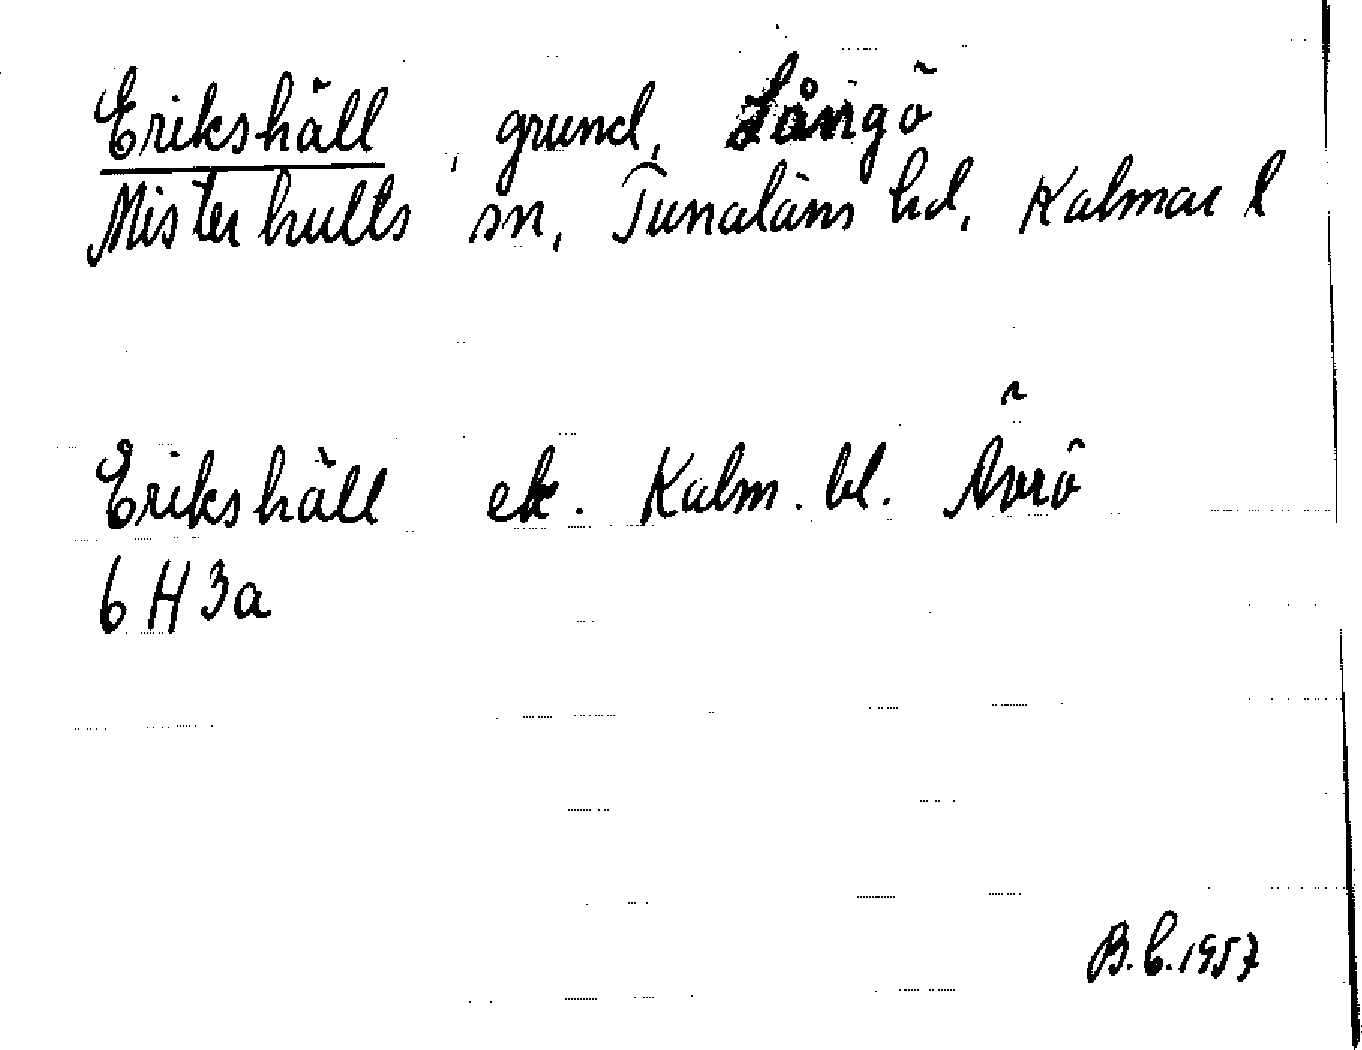 Erikshäll, grund, Långö
Misterhults sn, Tunaläns hd, Kalmar l
Erikshäll ek. Kalm. bl. Ävrö
6 H 3a
B.C. 1957